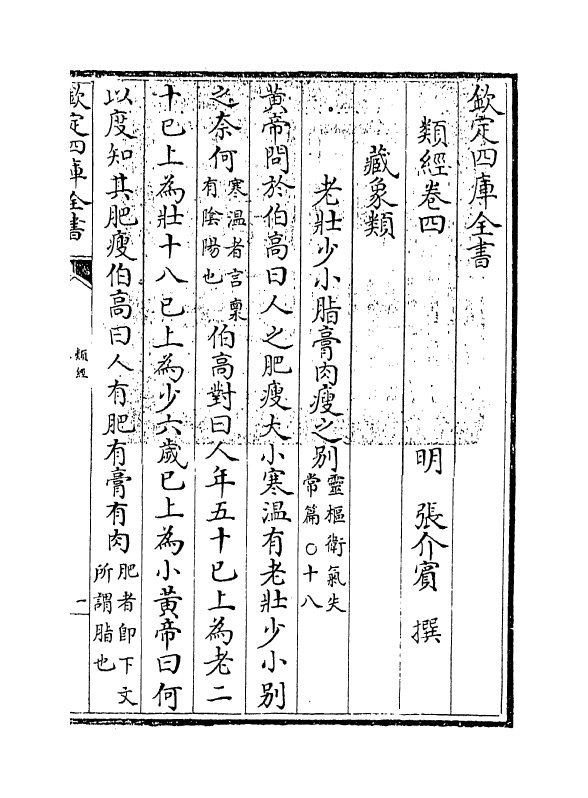 欽定四庫全書
類經卷四　明　張介賓　撰
藏象類
老壯少小脂膏肉瘦之別靈樞衛氣失
常篇○十八
黃帝問於伯高曰人之肥瘦大小寒溫有老壯少小別
之奈何寒溫者言稟
有陰陽也伯高對曰人年五十已上為老二
十已上為壯十八已上為少六歲已上為小黃帝曰何
以度知其肥瘦伯高曰人有肥有膏有肉肥者即下文
所謂脂也
欽定四庫全書
類經
一